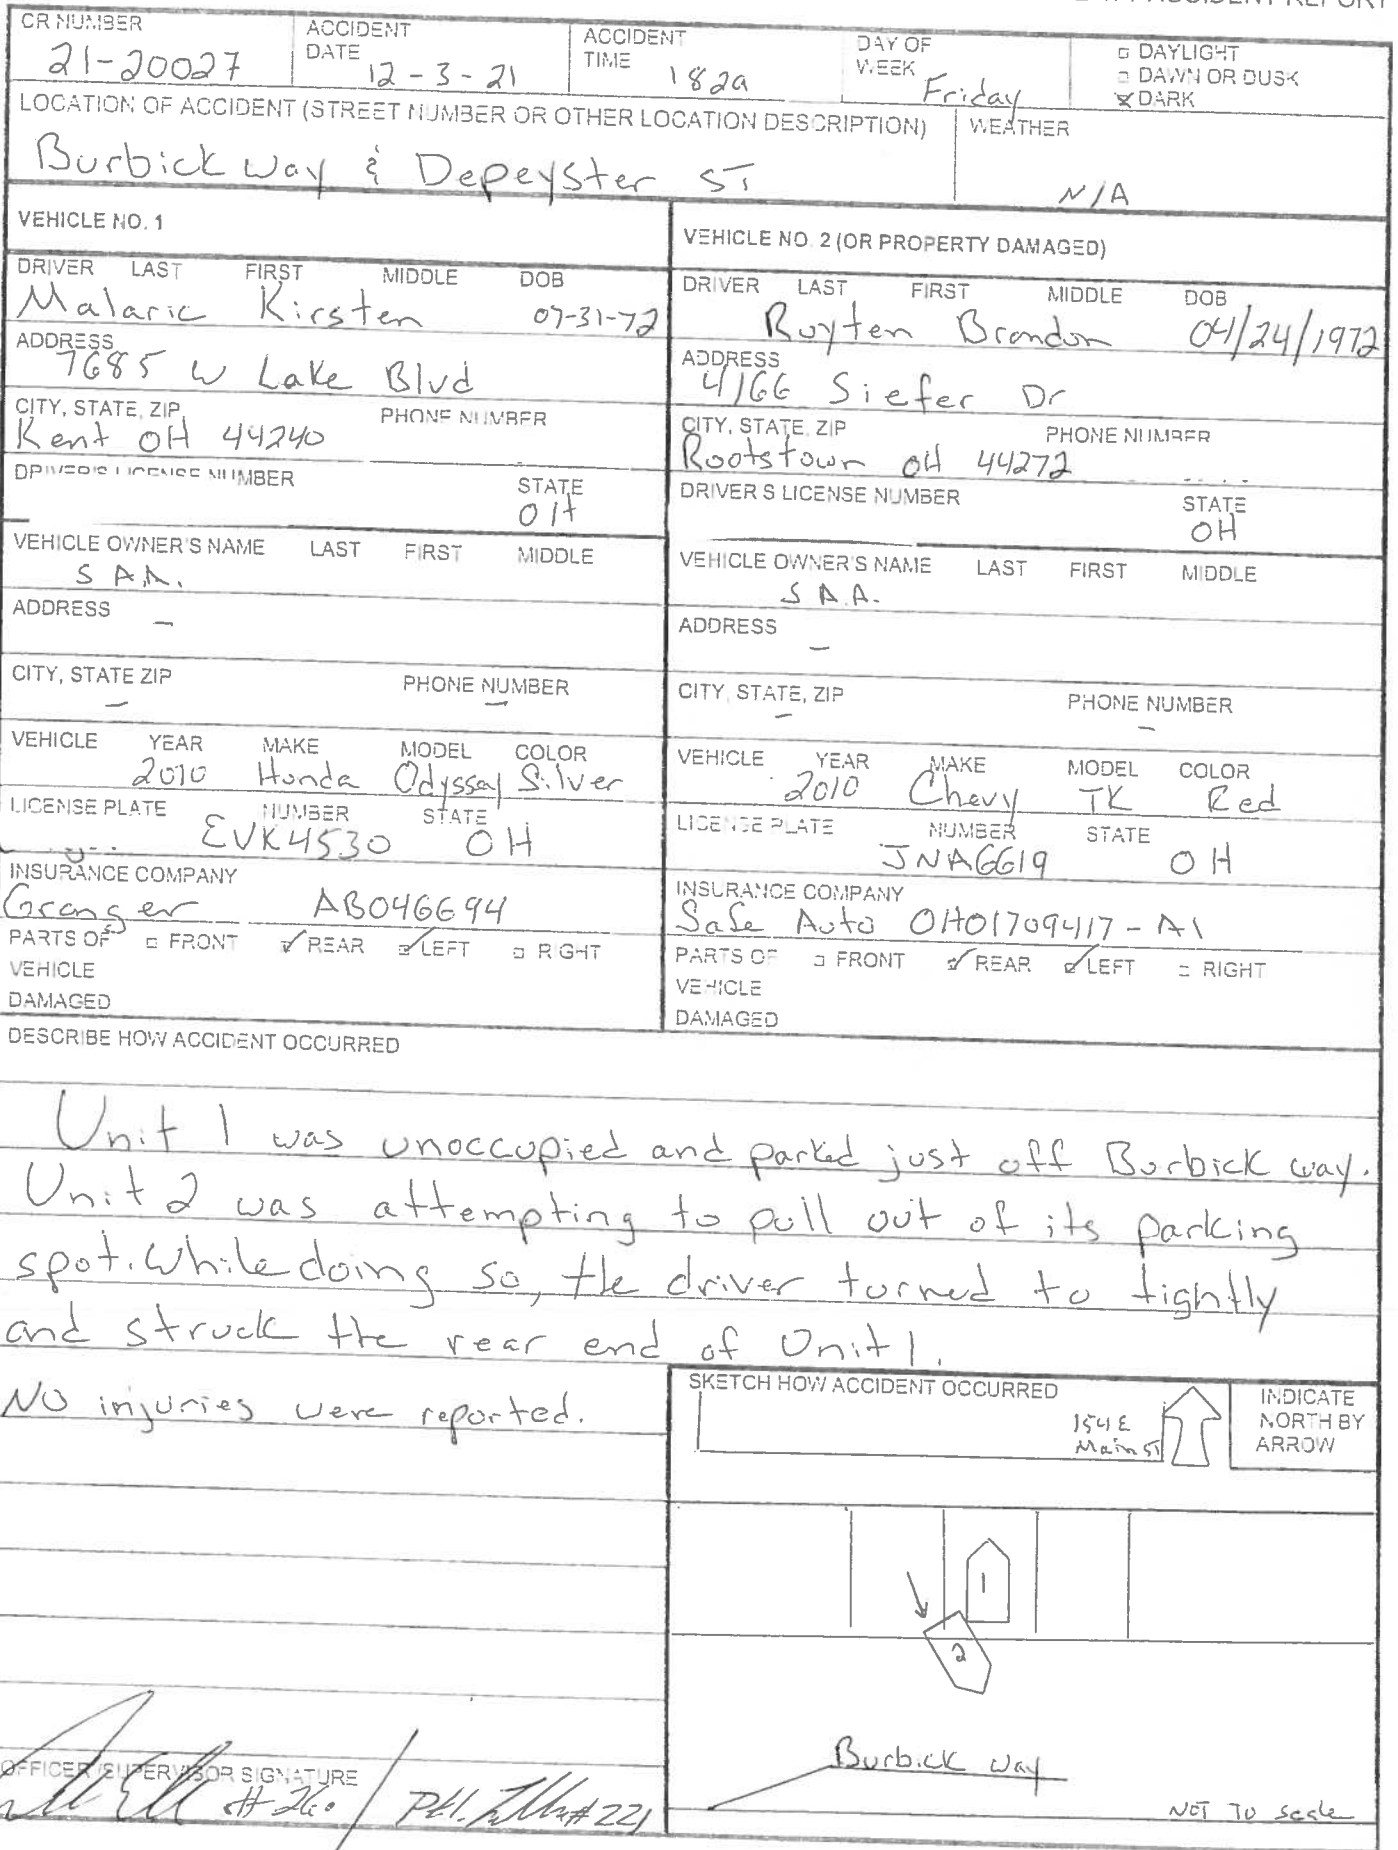 ACCIDENT REPORT
CR NUMBER ACCIDENT DATE ACCIDENT TIME DAY OF WEEK DAYLIGHT
21-20027 12-3-21 1829 Friday DAWN OR DUSK
DARK
LOCATION OF ACCIDENT (STREET NUMBER OR OTHER LOCATION DESCRIPTION) WEATHER
Burbick Way & Depeyster ST N/A
VEHICLE NO. 1
DRIVER LAST FIRST MIDDLE DOB
Malaric Kirsten 07-31-72
ADDRESS
7685 W Lake Blvd
CITY, STATE, ZIP PHONE NUMBER
Kent OH 44240
DRIVER'S LICENSE NUMBER STATE
OH
VEHICLE OWNER'S NAME LAST FIRST MIDDLE
S.A.A.
ADDRESS
-
CITY, STATE ZIP PHONE NUMBER
- -
VEHICLE YEAR MAKE MODEL COLOR
2010 Honda Odyssey Silver
LICENSE PLATE NUMBER STATE
EVK4530 OH
INSURANCE COMPANY
Granger AB046694
PARTS OF FRONT REAR LEFT RIGHT
VEHICLE
DAMAGED
VEHICLE NO. 2 (OR PROPERTY DAMAGED)
DRIVER LAST FIRST MIDDLE DOB
Ruyten Brandon 04/24/1972
ADDRESS
4166 Siefer Dr
CITY, STATE, ZIP PHONE NUMBER
Rootstown OH 44272
DRIVER'S LICENSE NUMBER STATE
OH
VEHICLE OWNER'S NAME LAST FIRST MIDDLE
S.A.A.
ADDRESS
-
CITY, STATE, ZIP PHONE NUMBER
- -
VEHICLE YEAR MAKE MODEL COLOR
2010 Chevy TK Red
LICENSE PLATE NUMBER STATE
JNA6619 OH
INSURANCE COMPANY
Safe Auto OH01709417-A1
PARTS OF FRONT REAR LEFT RIGHT
VEHICLE
DAMAGED
DESCRIBE HOW ACCIDENT OCCURRED
Unit 1 was unoccupied and parked just off Burbick way.
Unit 2 was attempting to pull out of its parking
spot. While doing so, the driver turned to tightly
and struck the rear end of Unit 1.
No injuries were reported.
OFFICER/SUPERVISOR SIGNATURE
#26 / Ptl. #221
SKETCH HOW ACCIDENT OCCURRED
154 E
Main ST
INDICATE
NORTH BY
ARROW
1
2
Burbick Way
NOT TO scale